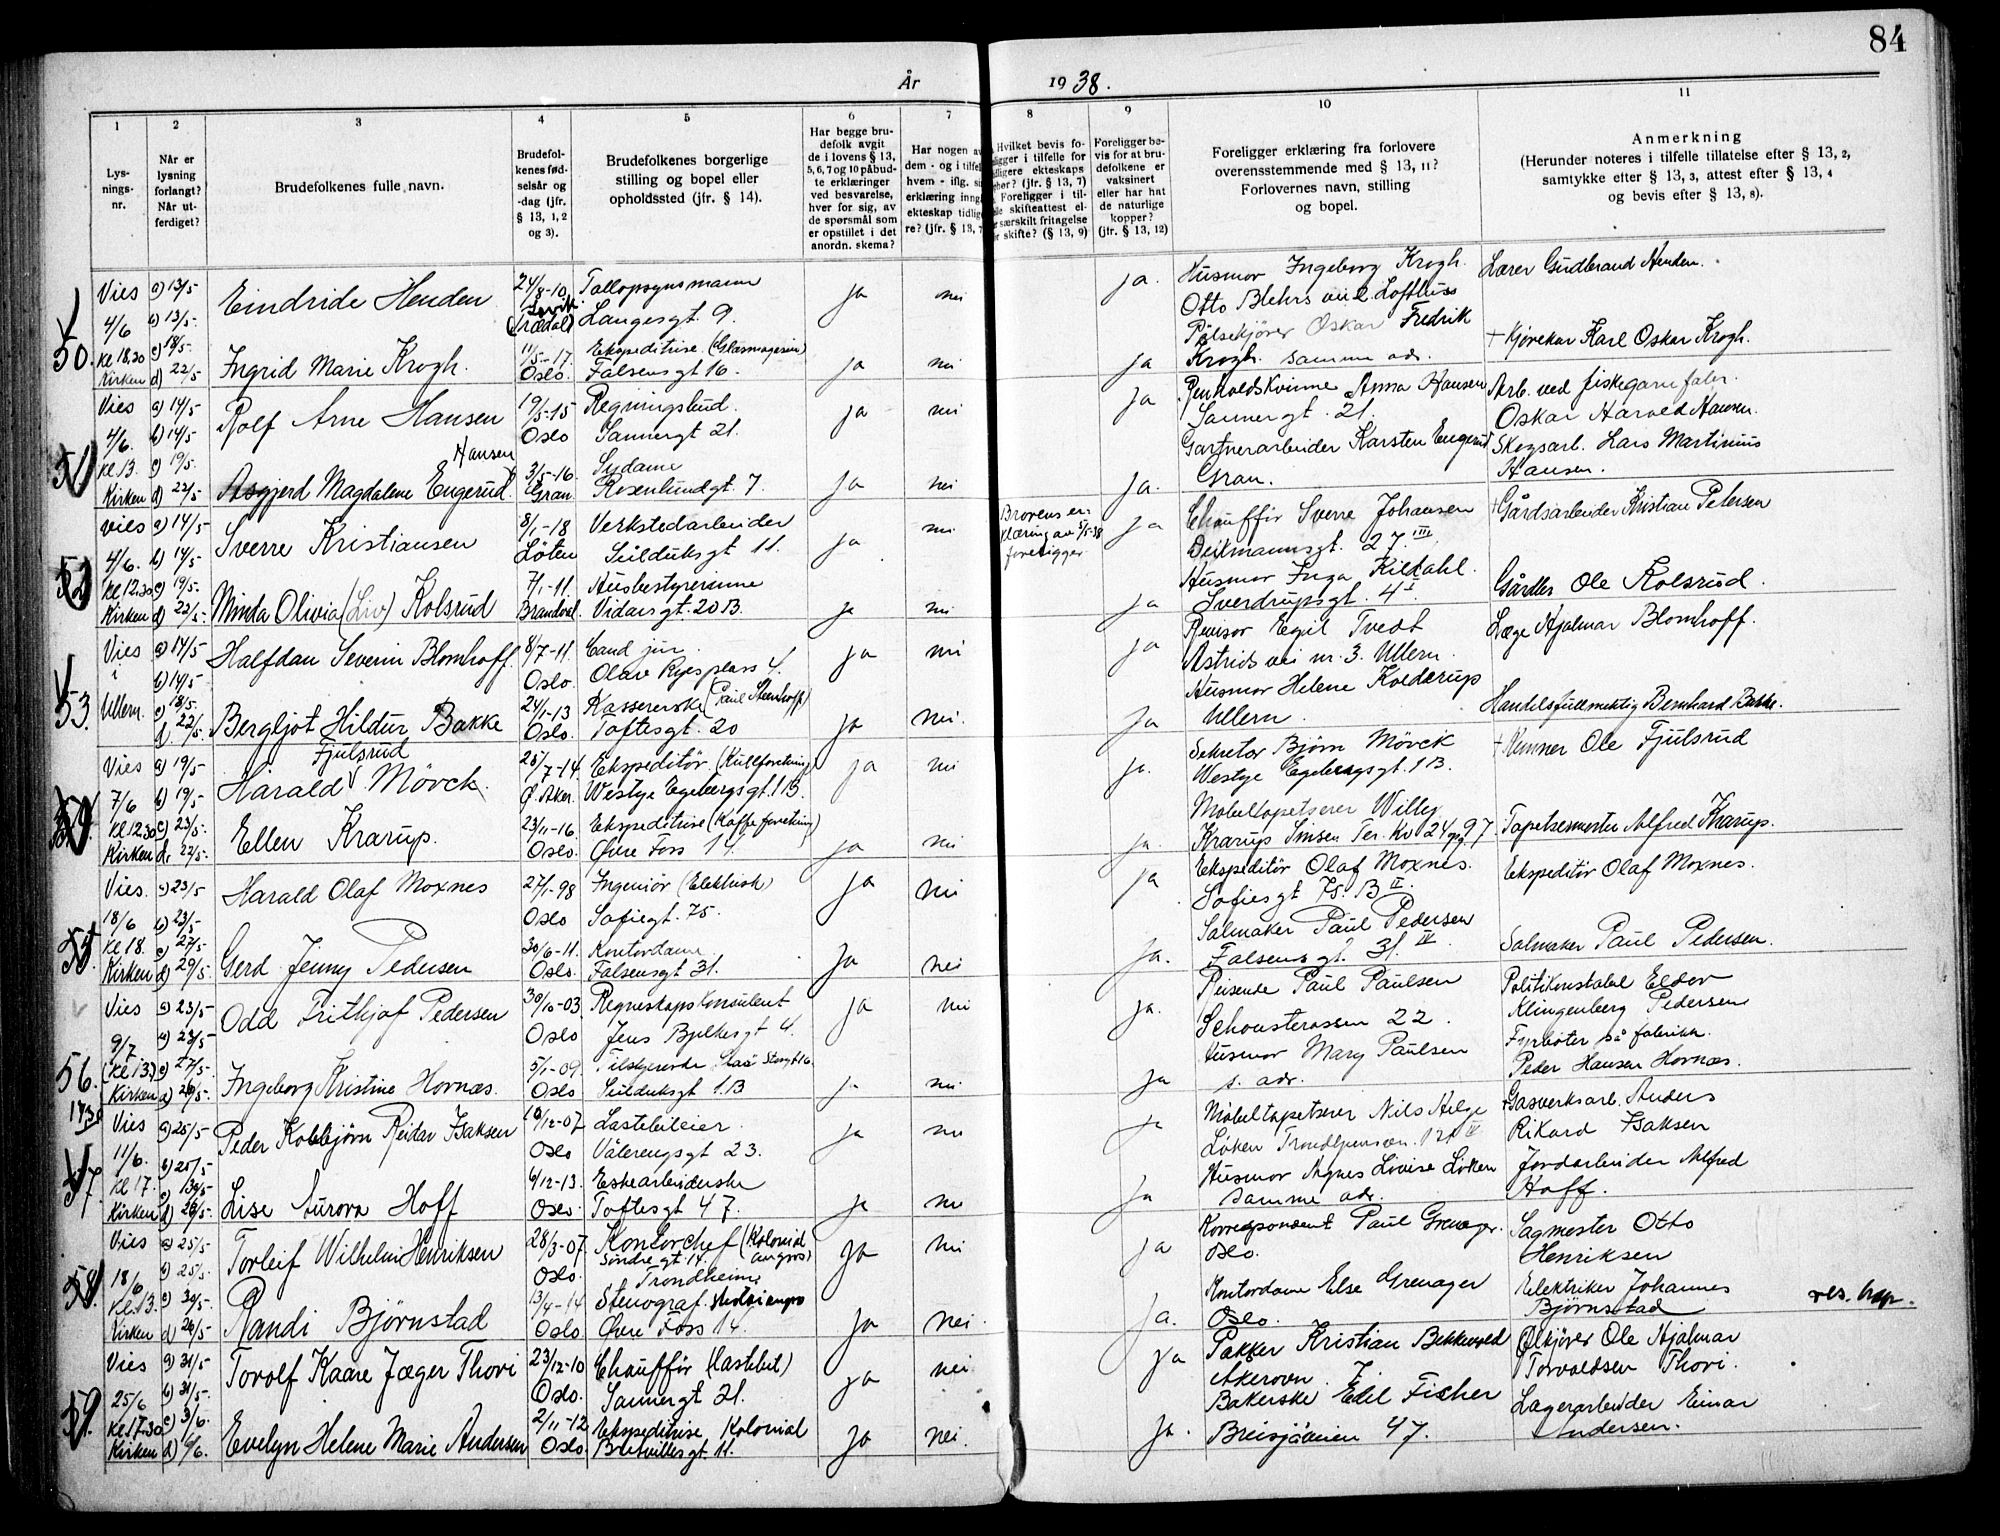 84
År 1938.
1
Lysnings-
nr.
2
Når er
lysning
forlangt?
Når ut-
ferdiget?
3
Brudefolkenes fulle navn.
4
Brudefol-
kenes fød-
selsår og
-dag (jfr.
§ 13, 1, 2
og 3).
5
Brudefolkenes borgerlige
stilling og bopel eller
opholdssted (jfr. § 14).
6
Har begge bru-
defolk avgit
de i lovens § 13,
5, 6, 7 og 10 påbud-
te erklæringer
ved besvarelse,
hver for sig, av
de spørsmål som
er opstillet i det
anordn. skema?
7
Har nogen av
dem - og i tilfel
hvem - iflg. si
erklæring inng
ekteskap tidlig
re? (jfr. § 13, 7
8
Hvilket bevis fo-
ligger i tilfelle for
tidligere ekteskaps
(jfr. § 13, 7)
Foreligger i til-
le skifteattest el-
særskilt fritagelse
skifte? (§ 13, 9)
9
Foreligger be-
vis for at bru-
defolkene er
vaksinert
eller har hat
de naturlige
kopper?
(jfr. § 13, 12)
10
Foreligger erklæring fra forlovere
overensstemmende med § 13, 11?
Forlovernes navn, stilling
og bopel.
11
Anmerkning
(Herunder noteres i tilfelle tillatelse efter § 13, 2,
samtykke efter § 13, 3, attest efter § 13, 4
og bevis efter § 13, 8).
50.
Vies 4/6 Kl 18,30 Kirken
a) 13/5 b) 13/5 c) 18/5 d) 22/5
Eindride Henden
24/8-10
Tollopsynsmann
Langesgt. 9.
ja nei ja.
Husmor Ingeborg Krogh.
Otto Blehrs vei 2. Lofthus
Lærer Gudbrand Henden.
Ingrid Marie Krogh.
11/5-17 Oslo.
Ekspeditrise (Glasmagasin)
Falsensgt 16.
ja nei ja
Pølsekjører Oskar Fredrik
Krogh. samme adr.
+ Kjørekar Karl Oskar Krogh.
51
Vies 4/6. Kl 13. Kirken
a) 14/5 b) 14/5 c) 19/5. d) 22/5
Rolf Arne Hansen
19/5-15 Oslo
Regningsbud.
Sannergt 21.
ja nei ja
Renholdskvinne Anna Hansen
Sannergt. 21.
Arb. ved fiskegarnfabr.
Oskar Harald Hansen.
Hansen
Asgjerd Magdalene Engerud
3/5-16 Gran
Sydame
Rosenlundgt. 7.
ja nei ja.
Gartnerarbeider Karsten Engerud
Gran.
Skogsarb. Lars Martinius
Hansen.
52
Vies 4/6. Kl 12.30 Kirken
a) 14/5 b) 14/5 c) 19/5 d) 22/5
Sverre Kristiansen
8/1-18 Løten
Verkstedarbeider
Seilduksgt 11.
ja nei
Brorens er-
klæring av 5/5-38
foreligger
ja
Chauffør Sverre Johansen
Deikmannsgt. 27. III
+ Gårdsarbeider Kristian Petersen
Minda Olivia (Liv) Kolsrud
7/1-11. Brandval.
Husbestyrerinne
Vidarsgt. 20 B.
ja nei ja
Husmor Inga Kildahl.
Sverdrupsgt. 4 I
Gårdbr. Ole Kolsrud.
53.
Vies i Ullern.
a) 14/5 b) 14/5 c) 18/5. d. 22/5.
Halfdan Severin Blomhoff.
8/7-11. Oslo.
Cand jur.
Olav Ryesplass 4.
ja nei ja
Revisor Egil Tvedt
Astrids vei nr. 3. Ullern.
Læge Hjalmar Blomhoff.
Bergljot Hildur Bakke
24/1-13 Oslo.
Kassererske
Toftesgt. 20
ja nei. ja
Husmor Helene Kolderup
Ullern.
Handelsfullmektig Bernhard Bakke.
Vies 7/6 Kl 12.30 Kirken
a) 19/5 b) 19/5 c) 23/5 d. 22/5.
Fjulsrud
Harald Mövck.
25/7-14. Ø. Aker.
Ekspeditör. (Kullforretning)
Westye Egebergsgt. 1 B.
ja nei ja.
Sekretær Bjørn Mövck
Westye Egebergsgt. 1 B.
+ Kunner Ole Fjulsrud
Ellen Krarup.
23/11-16. Oslo.
Ekspeditrise (Kaffe forretning)
Øvre Foss 14.
ja nei ja.
Møbeltapetserer Willy
Krarup Sinsen Ter. Kv 24 97
Tapetsermester Alfred Krarup.
55.
Vies. 18/6 Kl 18. Kirken
a) 23/5 b) 23/5 c) 27/5 d) 29/5.
Harald Olaf Moxnes
27/1-98 Oslo
Ingeniør (Elektrisk)
Sofiegt. 75.
ja nei ja
Ekspeditör Olaf Moxnes.
Sofiesgt 75. B II.
Ekspeditör Olaf Moxnes.
Gerd Jenny Pedersen
30/6-11. Oslo.
Kontordame
Falsensgt 31.
ja nei ja.
Salmaker Paul Pedersen
Falsensgt. 31. IV
Salmaker Paul Pedersen.
56.
Vies 9/7 (Kl 13.) Kirken
a) 23/5 b) 23/5 c) 27/5. d) 29/5.
Odd Frithjof Pedersen
30/10-03 Oslo
Regnskapskonsulent
Jens Bjelkesgt 4.
ja nei ja.
Reisende Paul Paulsen
Schousterassen 22.
Politikonstabel Eldor
Klingenberg Pedersen
Ingeborg Kristine Hornæs.
5/1-09. Oslo
Seilduksgt 1.B
ja nei ja
Husmor Mary Paulsen
s. adr.
Fyrbøter på fabrikk.
Peder Hansen Hornæs.
57.
Vies 11/6. Kl 17. Kirken
a) 25/5 b) 25/5 c) 30/5 d) 26/5.
Peder Kolbjørn Reidar Isaksen
10/12-07. Oslo
Lastebileier.
Vålerengsgt 23.
ja nei ja
Møbeltapetserer Nils Helge
Løken
+ Gasverksarb. Anders
Rikard Isaksen
Lise Aurora Hoff
6/12-13. Oslo.
Eskearbeiderske
Toftesgt 47.
ja nei ja
Husmor Agnes Lovise Løken
samme adr.
Jordarbeider Alfred
Hoff.
58
Vies 18/6 Kl. 13. Kirken
a) 25/5 b) 25/5. c) 30/5. d) 26/5.
Torleif Wilhelm Henriksen
28/3-07. Oslo.
Kontorchef (Kolonial
Söndregt 14. angros)
Trondheim.
ja nei ja
Korrespondent Paul Grenager.
Oslo.
Sagmester Otto
Henriksen
Randi Bjørnstad
13/4-14 Oslo.
Stenograf.
Øvre Foss 14.
ja nei. ja.
Kontordame Else Grenager
Oslo.
Elektriker Johannes
Bjørnstad
59.
Vies 25/6 Kl 17.30 Kirken
a) 31/5 b) 31/5. c) 3/6. d) 1/6.
Torolf Kaare Jæger Thovi
23/12-10 Oslo.
Chauffør (Lastebil)
Sannergt 21.
ja nei ja
Pakker Kristian Bekkevold
Akerovn. 7.
Ølkjører Ole Hjalmar
Torvaldsen Thovi.
Evelyn Helene Marie Andersen
2/11-12 Oslo.
Ekspeditrise Kolonial
Bretvillesgt. 11.
ja nei. ja.
Bakerske Edel Fischer
Breisjåveien 47.
Lagerarbeider Einar
Andersen.